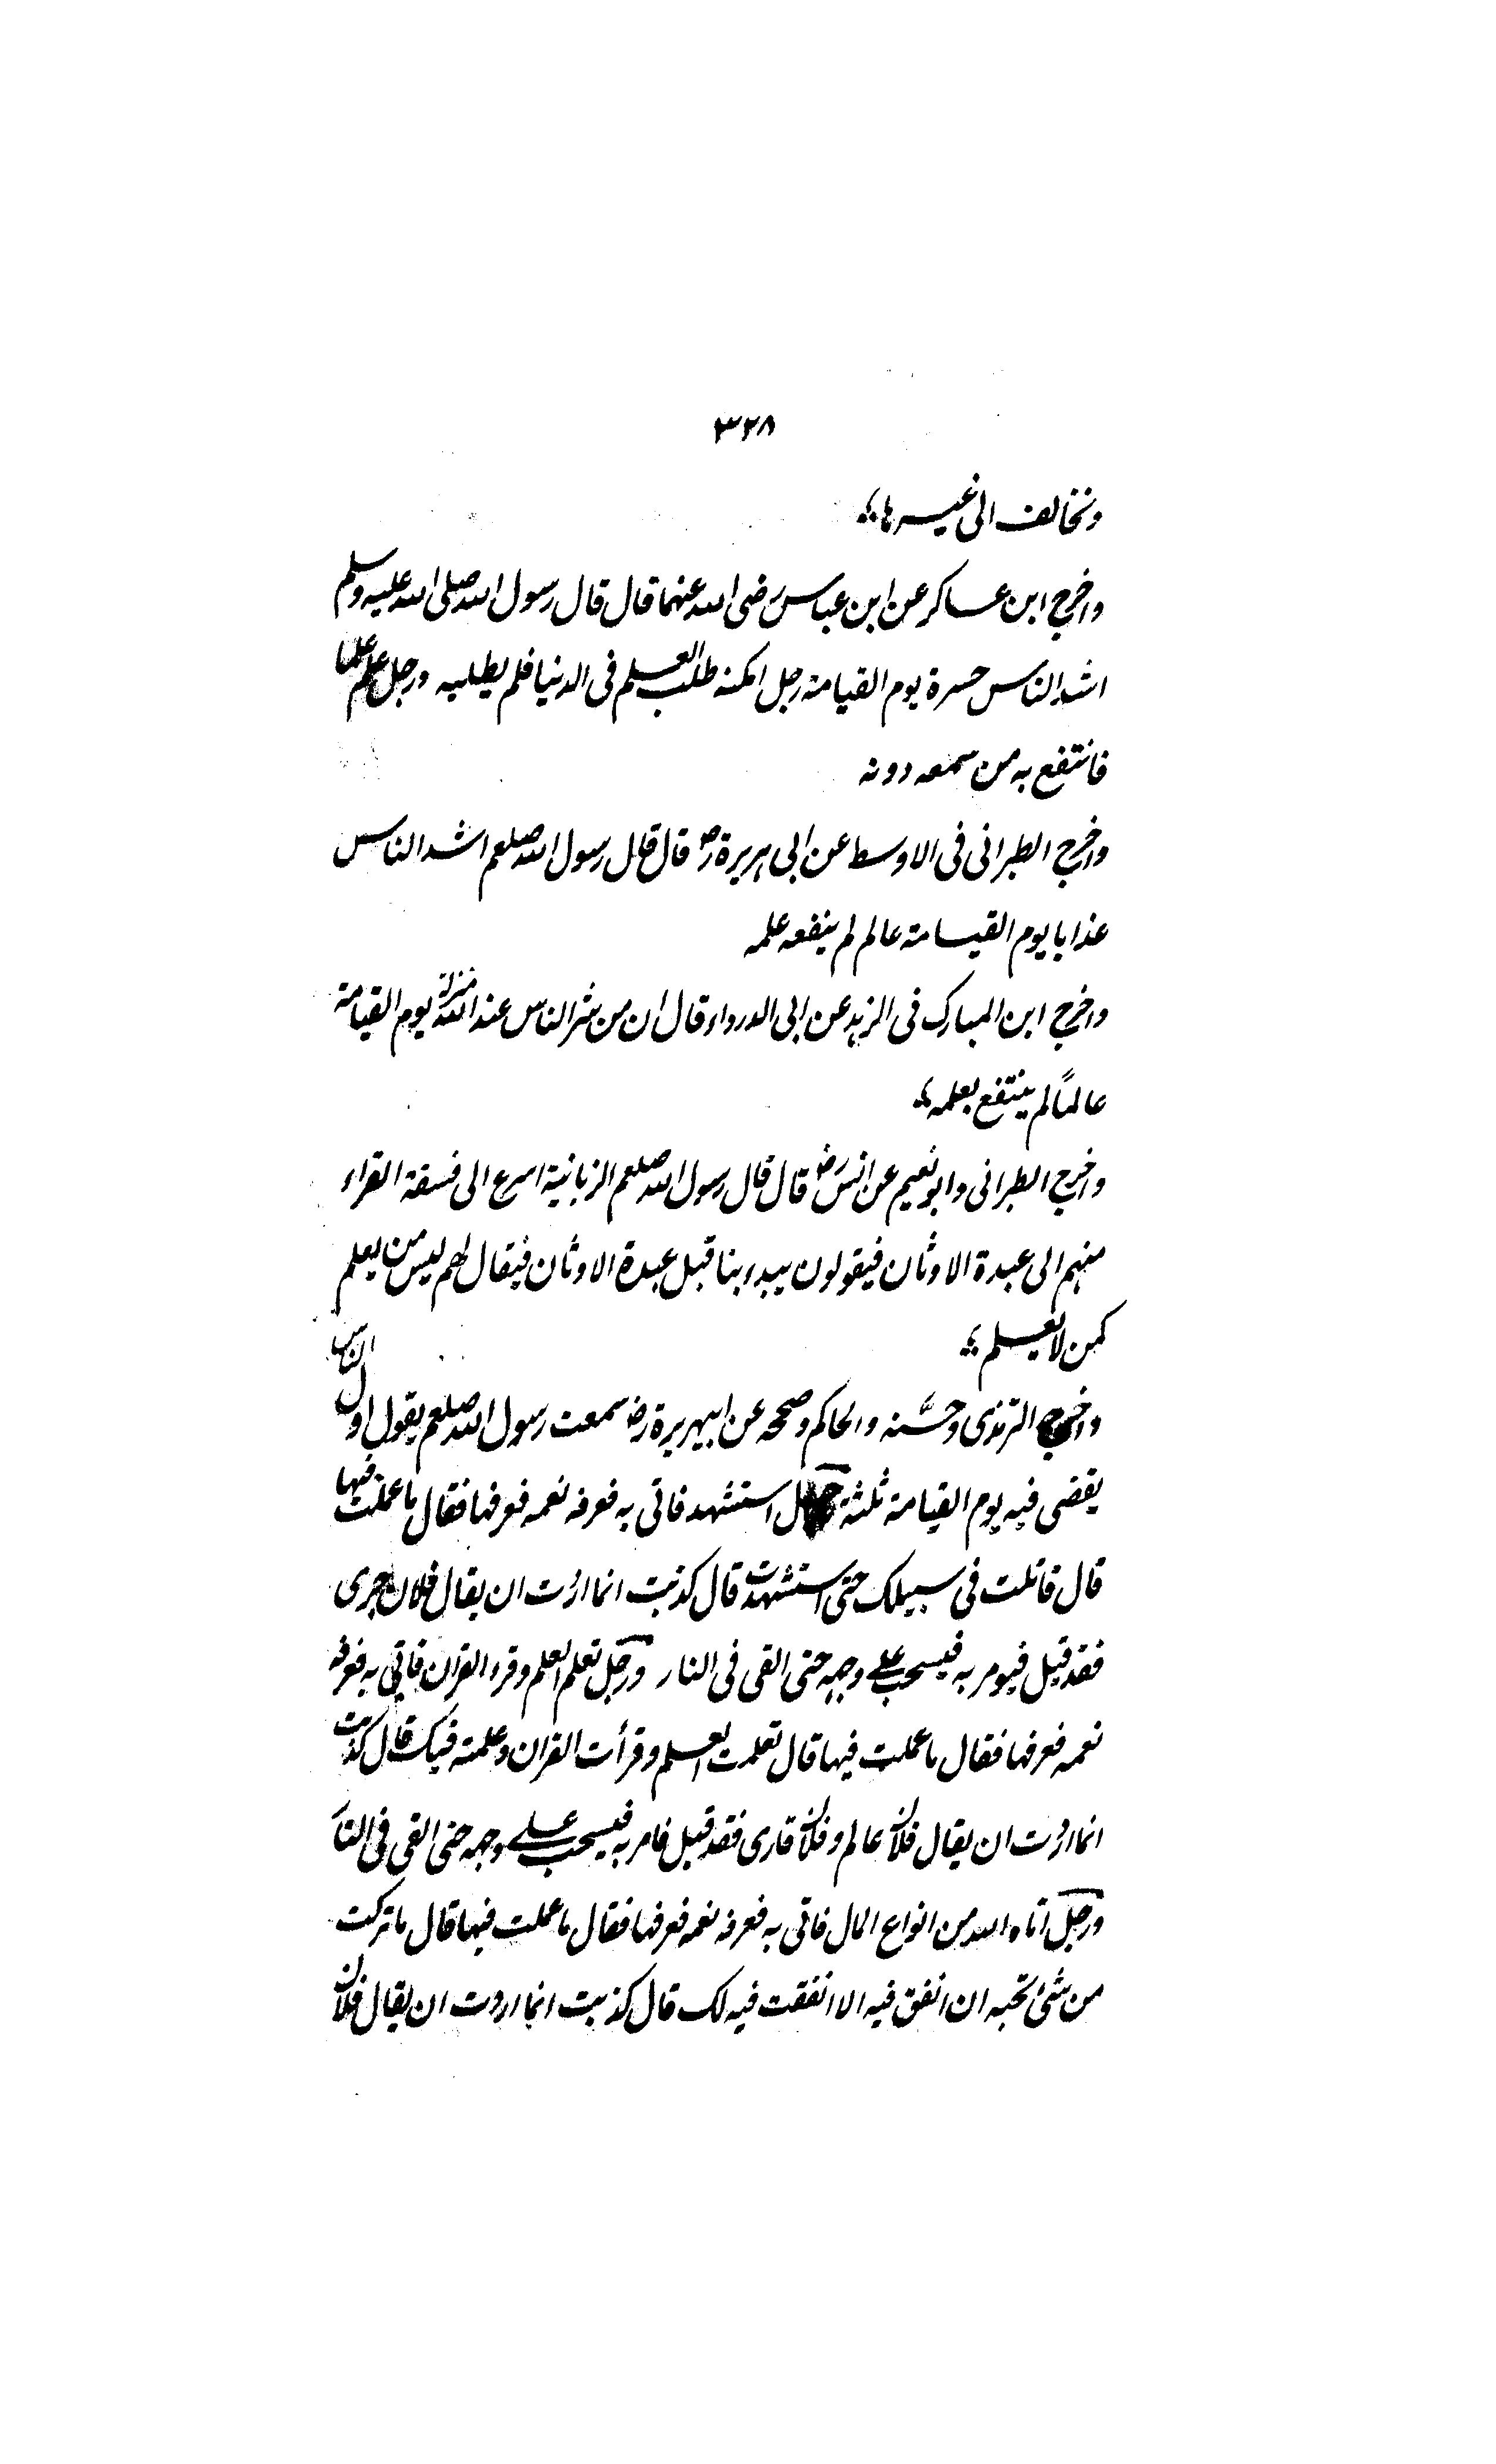 ٣٢٨
ونخالف الى غيرها
واخرج ابن عساكر عن ابن عباس رضى الله عنهما قال قال رسول الله صلى الله عليه وسلم
اشد الناس حسرة يوم القيامة رجل امكنه طلب العلم فى الدنيا فلم يطلبه ورجل علم علما
فانتفع به من سمعه دونه
واخرج الطبرانى فى الاوسط عن ابى هريرة رض قال قال رسول الله صلعم اشد الناس
عذابا يوم القيامة عالم لم ينفعه علمه
واخرج ابن المبارك فى الزهد عن ابى الدرداء قال ان من شر الناس عند الله منزلة يوم القيامة
عالمًا لم ينتفع بعلمه
واخرج الطبرانى وابو نعيم عن انس رض قال قال رسول الله صلعم الزبانية اسرع الى فسقة القراء
منهم الى عبدة الاوثان فيقولون يبدء بنا قبل عبدة الاوثان فيقال لهم ليس من يعلم
كمن لا يعلم
واخرج الترمذى وحسَّنه والحاكم وصححه عن ابيهريرة رض سمعت رسول الله صلعم يقول اول الناس
يقضى فيه يوم القيامة ثلثة رجل استشهد فاتى به فعرفه نعمه فعرفها فقال ما عملت فيها
قال قاتلت فى سبيلك حتى استشهدت قال كذبت انما اردت ان يقال فلان جرى
فقد قيل فيومر به فيسحب على وجهه حتى القى فى النار ورجل تعلم العلم وقرء القران فاتى به فعرفه
نعمه فعرفها فقال ما عملت فيها قال تعلمت العلم وقرأت القران وعلمته فيك قال كذبت
انما اردت ان يقال فلان عالم وفلان قارى فقد قيل فامر به فيسحب على وجهه حتى القى فى النار
ورجل اتاه الله من انواع المال فاتى به فعرفه نعمه فعرفها فقال ما عملت فيها قال ما تركت
من شئ تحبه ان انفق فيه الا انفقت فيه لك قال كذبت انما اردت ان يقال فلان